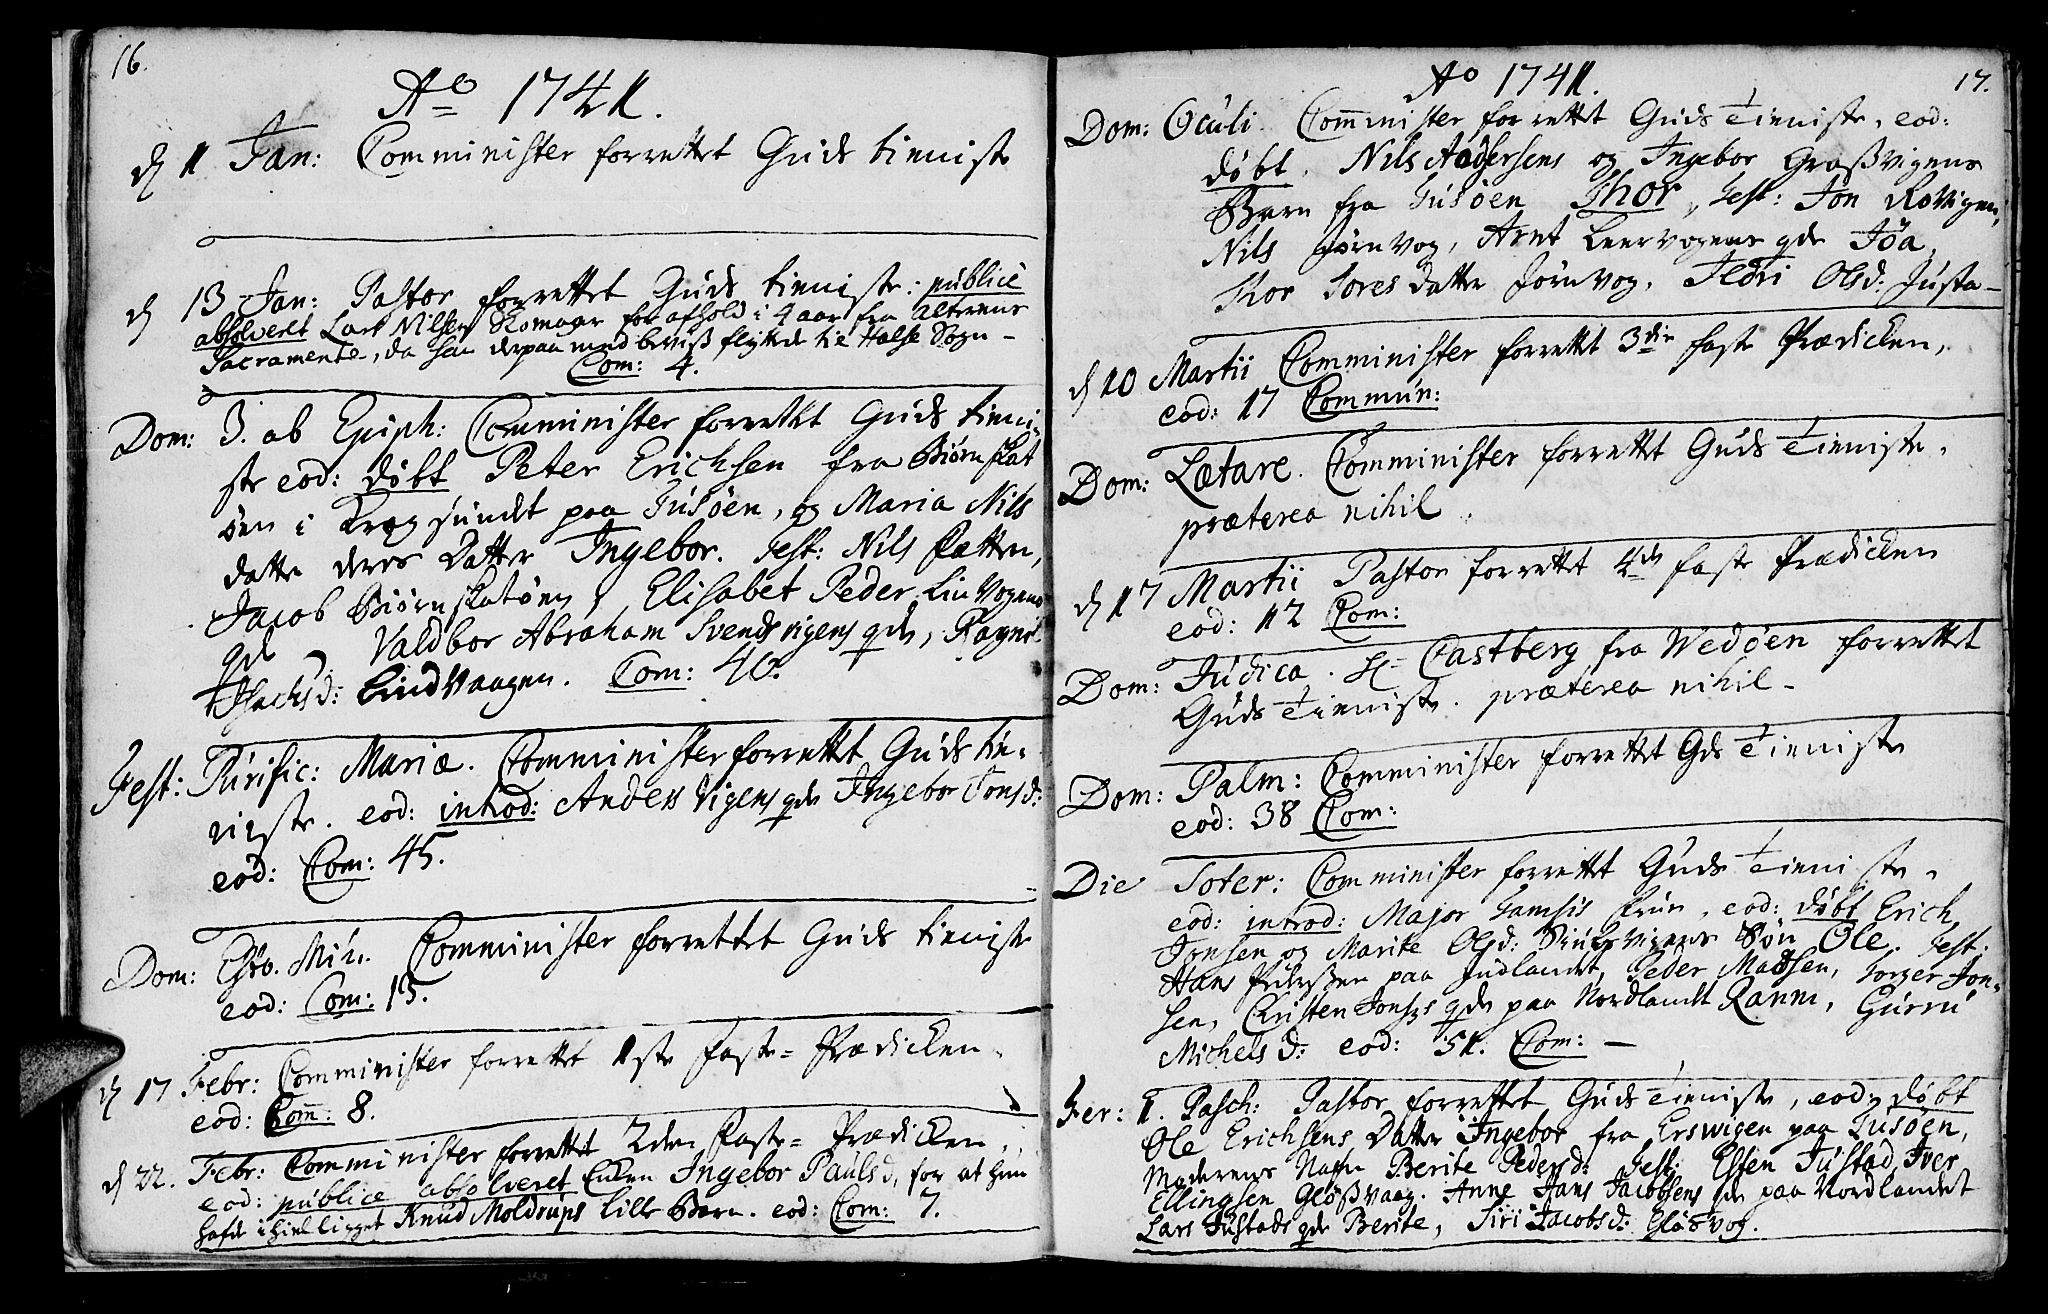 16.
Ao 1741.
d 1 Jan: Comminister forrettet Guds tieniste
d 13 Jan: Pastor forrettet Guds tieniste: publicè
absolveret Lars Nilsen Romaar for afhold i 4 aar fra Alterens
Sacramente, da han derpaa med beviß flyttede til Halse Sogn -
Com: 4.
Dom: 3. ab Epiph: Comminister forrettet Guds tieni-
ste eod: døbt Peter Erichsen fra Biørnskat
øen i Kragsundet paa Tusøen, og Maria Nils
datter deres Datter Ingebor. Test: Nils Sætter,
Jacob Biørnskatøen, Elisabet Peder Linvogens
qde, Valdbor Abraham Svendsvigens qde, Ragnil
Isachsd: Lindvaagen. Com: 40.
Fest: Purific: Mariæ. Comminister forrettet Guds tie-
niste. eod: introd: Anders Vigens qde Ingebor Jonsd:
eod: Com: 45.
Dom: Esto. Mihi. Comminister forrettet Guds tieniste
eod: Com: 13.
d 17 Febr: Comminister forrettet 1ste Faste=Prædicken.
eod: Com: 8.
d 22. Febr: Comminister forrettet 2den Faste=Prædicken.
eod: publice absolveret Enken Ingebor Paulsd, for at hun
hafde ihiel ligget Knud Moldrups lille Barn. eod: Com: 7.
Ao 1741.
17.
Dom: Oculi. Comminister forrettet Guds Tieniste, eod:
døbt. Nils Andersens og Ingebor Graßvigens
Barn fra Tusøen Thor, Test: Jon Rovigen,
Nils Jørnvog, Arnt Leervogens qde Jøa,
Thor Toresdatter Jørnvog, Ildri Olsd: Justa-
d 10 Martii Comminister forrettet 3die faste Prædicken,
eod: 17 Commun:
Dom: Lætare. Comminister forrettet Guds Tieniste.
præterea nihil.
d 17 Martii Pastor forrettet 4de faste Prædicken
eod: 12 Com:
Dom: Judica. Hr Castberg fra Wedøen forrettet
Guds Tieniste. præterea nihil -
Dom: Palm: Comminister forrettet Gds Tieniste
eod: 38 Com:
Die Soter: Comminister forrettet Guds Tieniste.
eod: introd: Major Frue, eod: døbt Erich
Jonsen og Marite Olsd: Søn Ole. Test:
Hans Pedersen paa Indlandet, Peder Madsen, Torger Jon-
sen, Christen Jonsens qde paa Nordlandet Ranni, Gurru
Michelsd: eod: 51. Com: -
Fer: 1. Pasch: Pastor forrettet Guds Tieniste, eod: døbt
Ole Erichsens Datter Ingebor fra Ersvigen paa Tusøen,
Moderens Nafn Berite Pedersd: Test: Esten Justad, Iver
Ellingsen Gløßvaag. Anne Hans Jacobsens qde paa Nordlandet
Lars Justads qde Berite, Siri Jacobsd: Gløsvog.